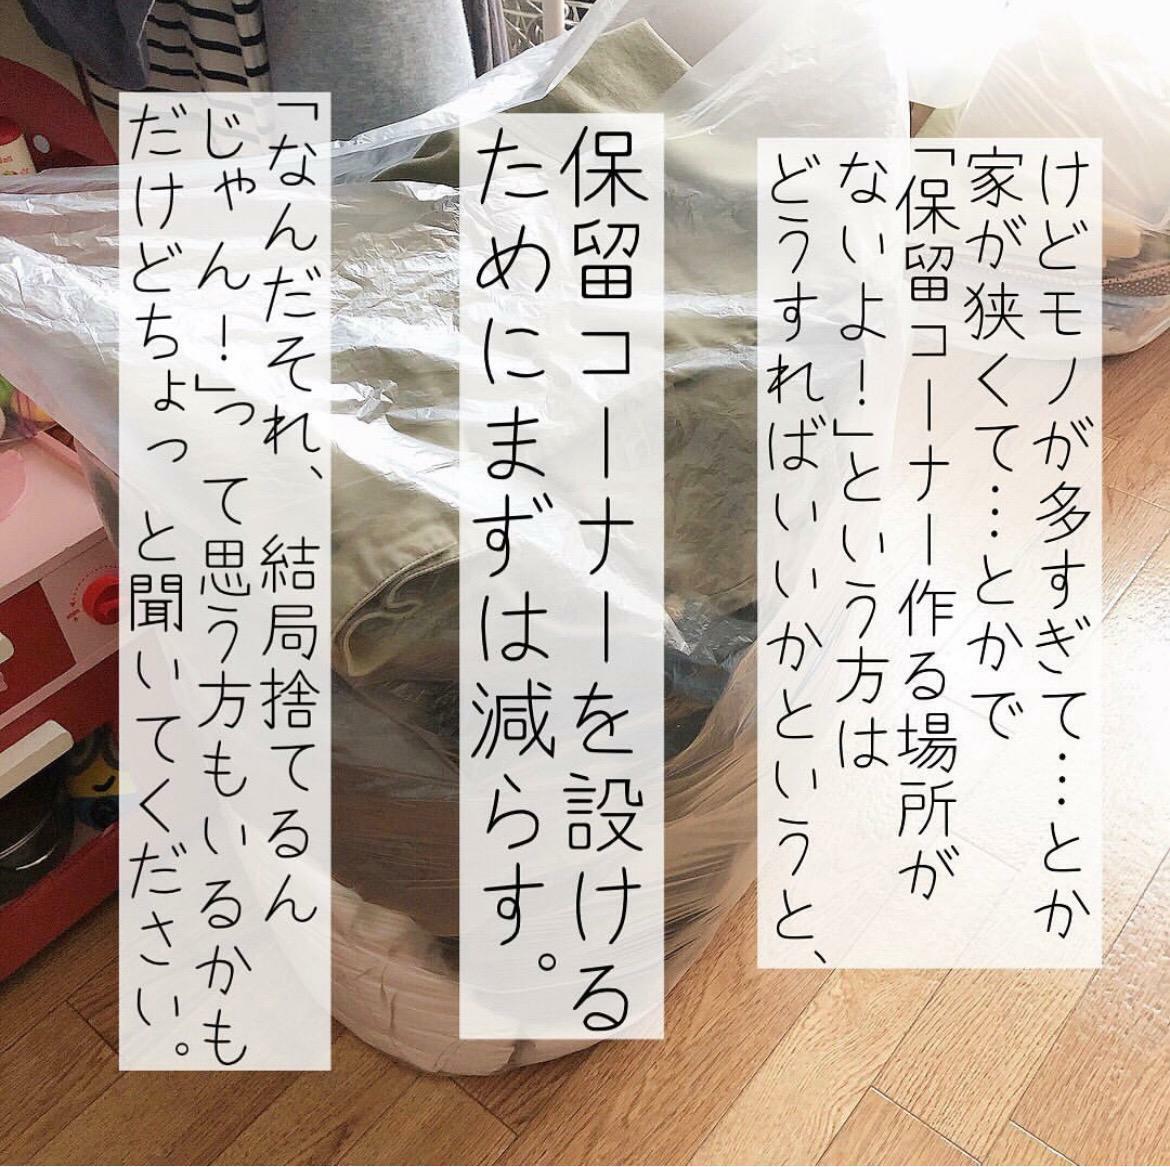 けどモノが多すぎて…とか
家が狭くて…とかで
「保留コーナー作る場所が
ないよ！」という方は
どうすればいいかというと、
保留コーナーを設ける
ためにまずは減らす。
「なんだそれ、結局捨てるん
じゃん！」って思う方もいるかも
だけどちょっと聞いてください。